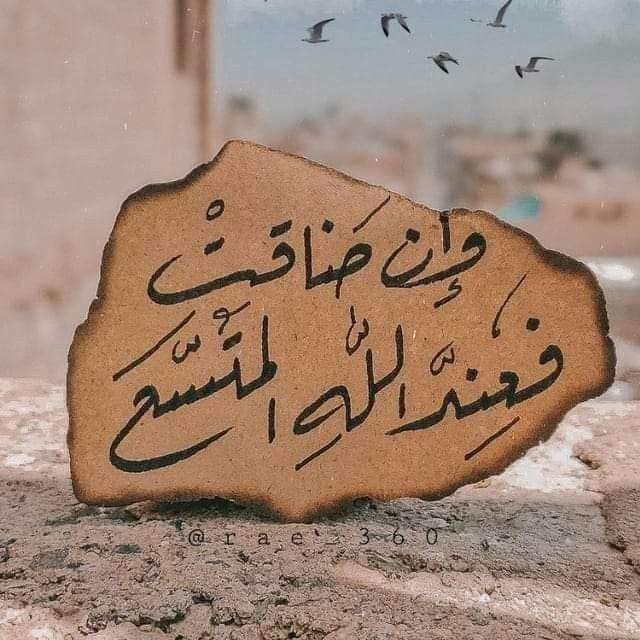 وإن ضاقتْ
فعِندَّ اللّٰهِ المتَّسَع
@rae_360